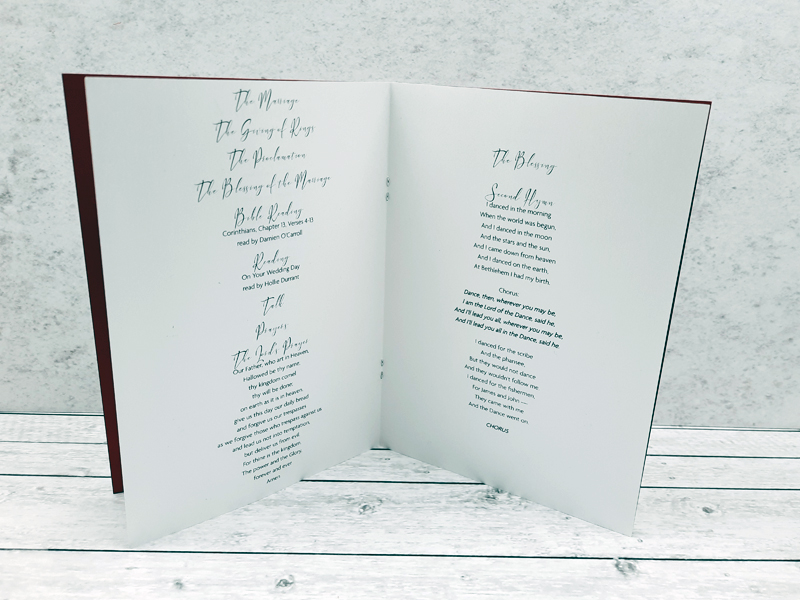 The Marriage
The Giving of Rings
The Proclamation
The Blessing of the Marriage
Bible Reading
Corinthians, Chapter 13, Verses 4-13
read by Damien O'Carroll
Reading
On Your Wedding Day
read by Hollie Durrant
Talk
Prayers
The Lord's Prayer
Our Father, who art in Heaven,
Hallowed be thy name.
thy kingdom come!
thy will be done;
on earth as it is in heaven.
give us this day our daily bread
and forgive us our trespasses
as we forgive those who trespass against us
and lead us not into temptation,
but deliver us from evil.
For thine is the kingdom.
The power and the Glory.
forever and ever
Amen
The Blessing
Second Hymn
I danced in the morning
When the world was begun,
And I danced in the moon
And the stars and the sun,
And I came down from heaven
And I danced on the earth,
At Bethlehem I had my birth.
Chorus:
Dance, then, wherever you may be,
I am the Lord of the Dance, said he,
And I'll lead you all, wherever you may be,
And I'll lead you all in the Dance, said he
I danced for the scribe
And the pharisee,
But they would not dance
And they wouldn't follow me.
I danced for the fishermen,
For James and John —
They came with me
And the Dance went on
CHORUS